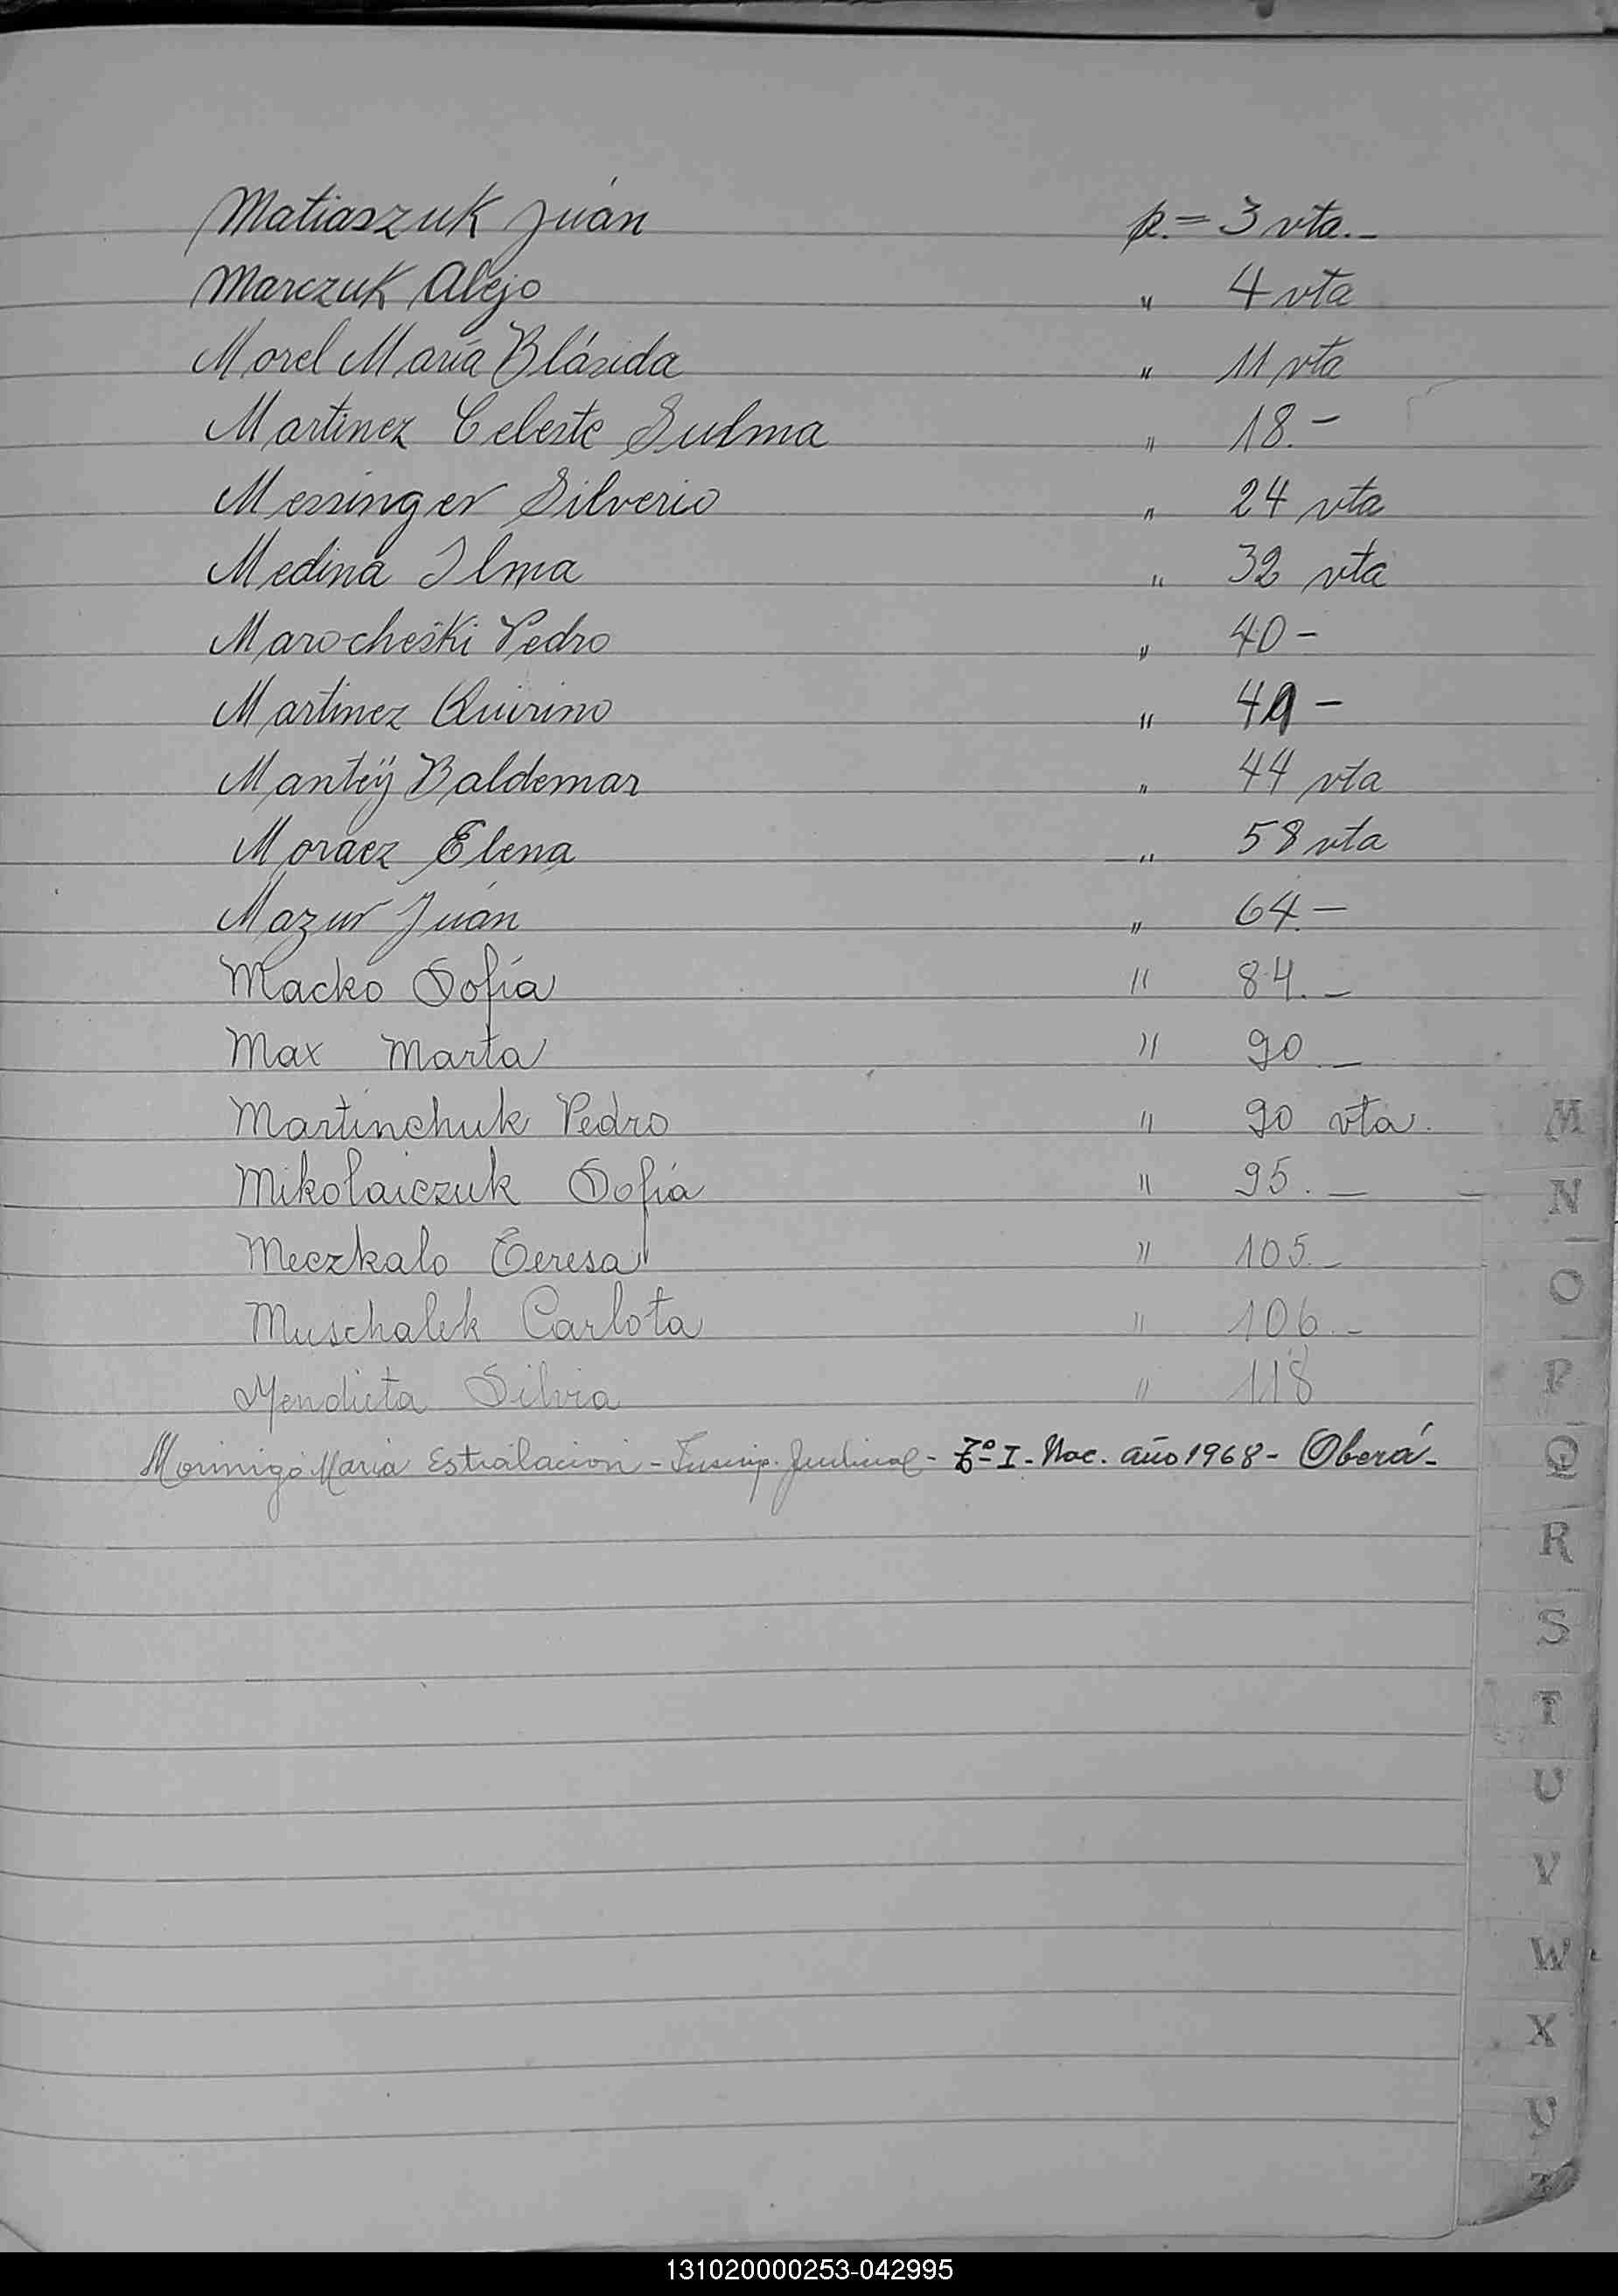 Matiaszuk Juán p.= 3 vta.-
Marczuk Alejo " 4 vta
Morel María Blásida " 11 vta
Martinez Celeste Sulma " 18.-
Messinger Silverio " 24 vta
Medina Ilma " 32 vta
Marocheski Pedro " 40 -
Martinez Quirino " 41 -
Manteÿ Baldemar " 44 vta
Moraez Elena " 58 vta
Mazur Juán " 64.-
Macko Sofía " 84.-
Max Marta " 90 -
Martinchuk Pedro " 90 vta.
Mikolaiczuk Sofía " 95.-
Meczkalo Teresa " 105.-
Muschalek Carlota " 106.-
Mendieta Silvia " 118
Morinigo Maria Estralacion - Inscrip. Judicial - Tº I - Nac. año 1968 - Oberá -
M
N
O
P
Q
R
S
T
U
V
W
X
Y
Z
131020000253-042995